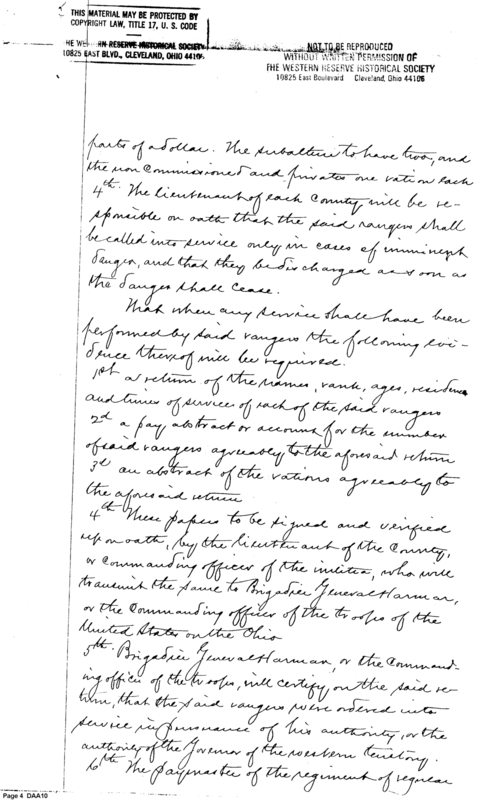 THIS MATERIAL MAY BE PROTECTED BY
COPYRIGHT LAW, TITLE 17, U. S. CODE
HE WESTERN RESERVE HISTORICAL SOCIETY
10825 EAST BLVD., CLEVELAND, OHIO 44106
NOT TO BE REPRODUCED
WITHOUT WRITTEN PERMISSION OF
THE WESTERN RESERVE HISTORICAL SOCIETY
10825 East Boulevard Cleveland, Ohio 44106
parts of a dollar. The subaltern to have two, and
the non commissioned and privates one ration each
4th. The lieutenant of each County will be re-
sponsible on oath that the said rangers shall
be called into service only in cases of imminent
danger, and that they be discharged as soon as
the danger shall cease.
That when any service shall have been
performed by said rangers the following evi-
dence thereof will be required.
1st a return of the names, rank, ages, residence
and times of services of each of the said rangers
2d a pay abstract or account for the number
of said rangers agreeably to the aforesaid return
3d an abstract of the rations agreeably to
the aforesaid return
4th These papers to be signed and verified
upon oath, by the lieutenant of the County,
or commanding officer of the militia, who will
transmit the same to Brigadier General Harmar,
or the Commanding officer of the troops of the
United States on the Ohio
5th. Brigadier General Harmar, or the Command-
ing officer of the troops, will certify, on the said re-
turn, that the said rangers were ordered into
service in pursuance of his authority, or the
authority of the Governor of the western territory.
6th The paymaster of the regiment of regular
Page 4 DAA10